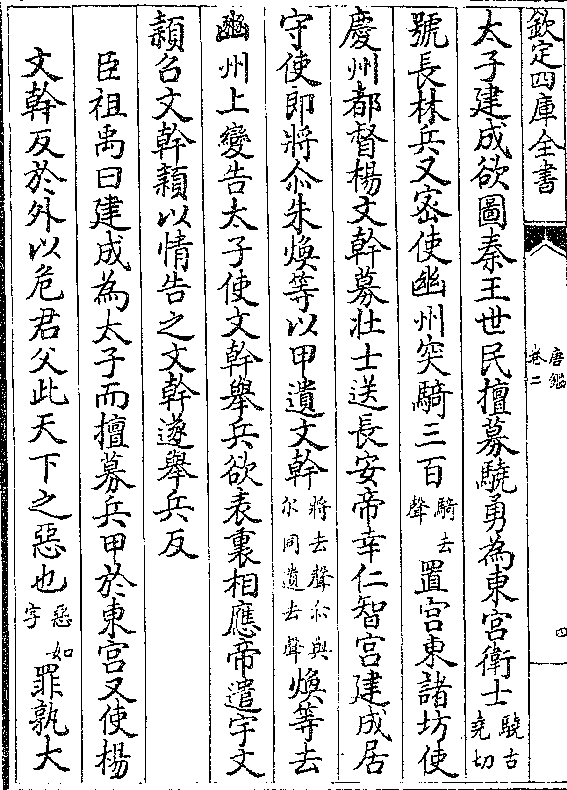 欽定四庫全書
唐鑑
卷二
四
太子建成欲圖秦王世民擅募驍勇為東宫衛士驍古堯切
號長林兵又密使幽州突騎三百騎去聲置宫東諸坊使
慶州都督楊文幹募壯士送長安帝幸仁智宫建成居
守使即將尒朱煥等以甲遺文幹將去聲尒與尔同遺去聲煥等去
幽州上變告太子使文幹舉兵欲表裏相應帝遣宇文
頴召文幹頴以情告之文幹遂舉兵反
臣祖禹曰建成為太子而擅募兵甲於東宫又使楊
文幹反於外以危君父此天下之惡也惡如字罪孰大